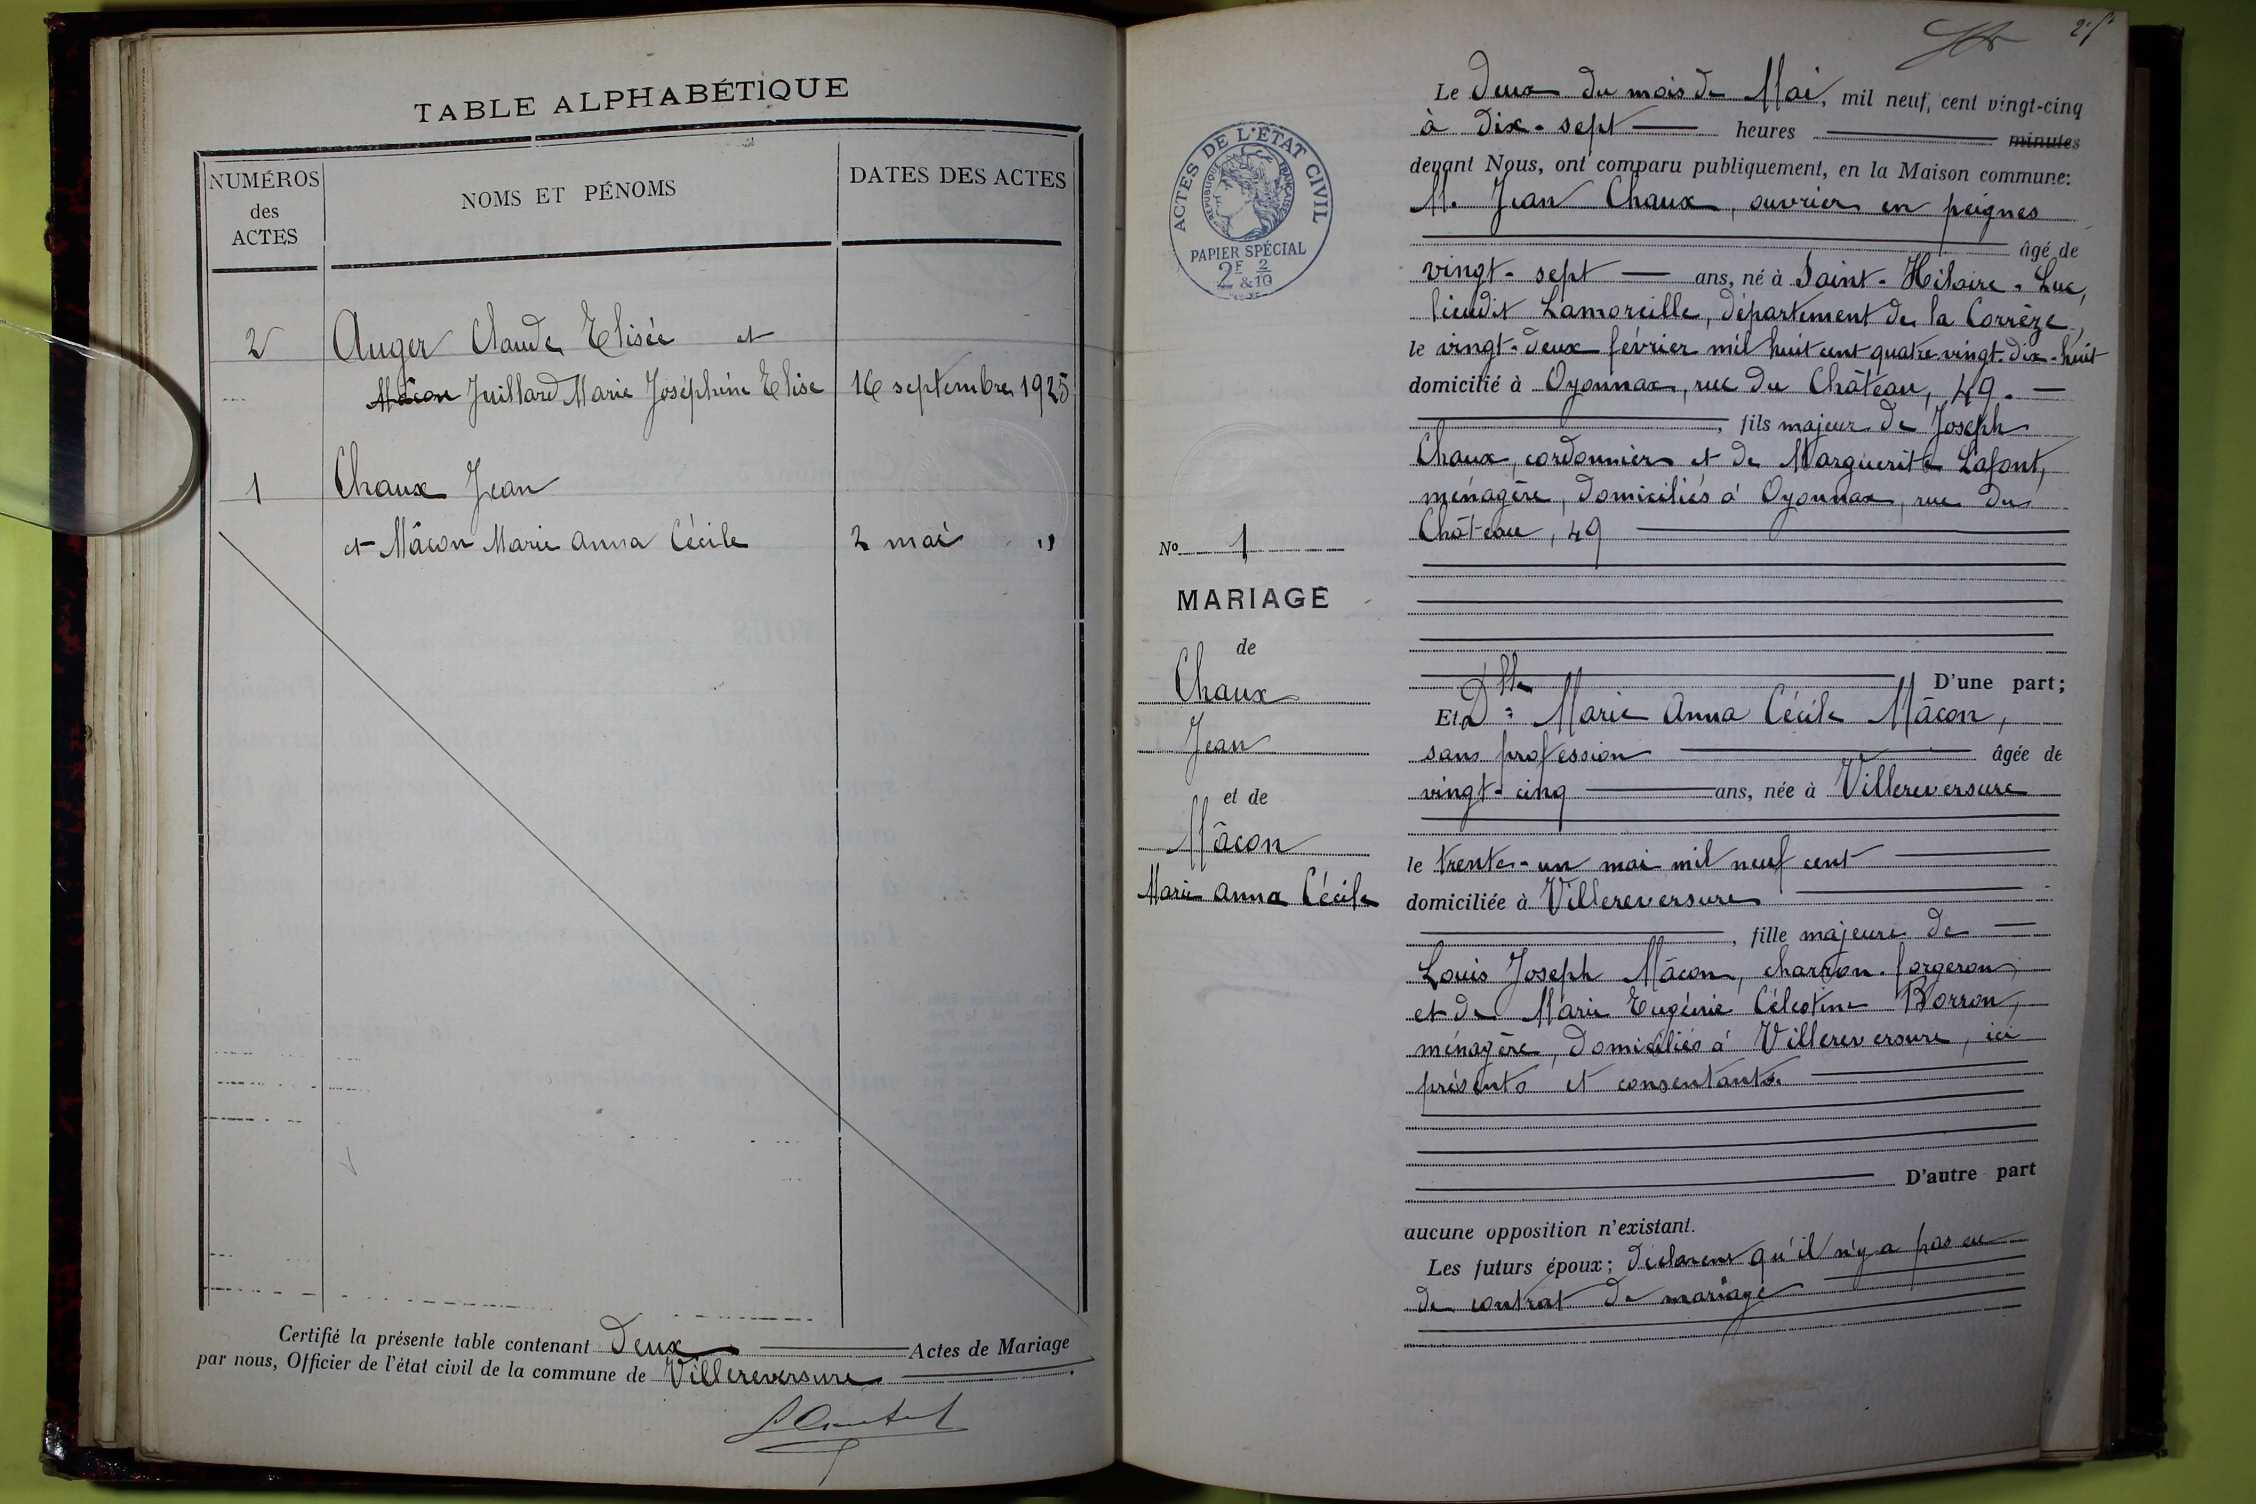 TABLE ALPHABÉTIQUE
NUMÉROS
des
ACTES
NOMS ET PÉNOMS
DATES DES ACTES
2 Auger Claude Elisée et
Mâcon Juillard Marie Joséphine Elise 16 septembre 1925
1 Chaux Jean
et Mâcon Marie Anna Cécile 2 mai "
Certifié la présente table contenant Deux Actes de Mariage
par nous, Officier de l'état civil de la commune de Villereversure
ACTES DE L'ÉTAT CIVIL
RÉPUBLIQUE FRANÇAISE
PAPIER SPÉCIAL
2F & 2/10
No 1
MARIAGE
de
Chaux
Jean
et de
Mâcon
Marie Anna Cécile
Le Deux du mois de Mai, mil neuf cent vingt-cinq
à Dix-sept heures minutes
devant Nous, ont comparu publiquement, en la Maison commune:
M. Jean Chaux, ouvrier en peignes
âgé de
vingt-sept ans, né à Saint-Hilaire-Luc,
lieudit Lamoreille, département de la Corrèze,
le vingt-deux février mil huit cent quatre-vingt-dix-huit
domicilié à Oyonnax, rue du Château, 49.
, fils majeur de Joseph
Chaux, cordonnier et de Marguerite Lafont,
ménagère, domiciliés à Oyonnax, rue du
Château, 49
D'une part;
Et Dlle Marie Anna Cécile Mâcon,
sans profession âgée de
vingt-cinq ans, née à Villereversure
le trente-un mai mil neuf cent
domiciliée à Villereversure
, fille majeure de
Louis Joseph Mâcon, charron-forgeron,
et de Marie Eugénie Célestine Borron,
ménagère, domiciliés à Villereversure, ici
présents et consentants.
D'autre part
aucune opposition n'existant.
Les futurs époux; déclarent qu'il n'y a pas eu
de contrat de mariage